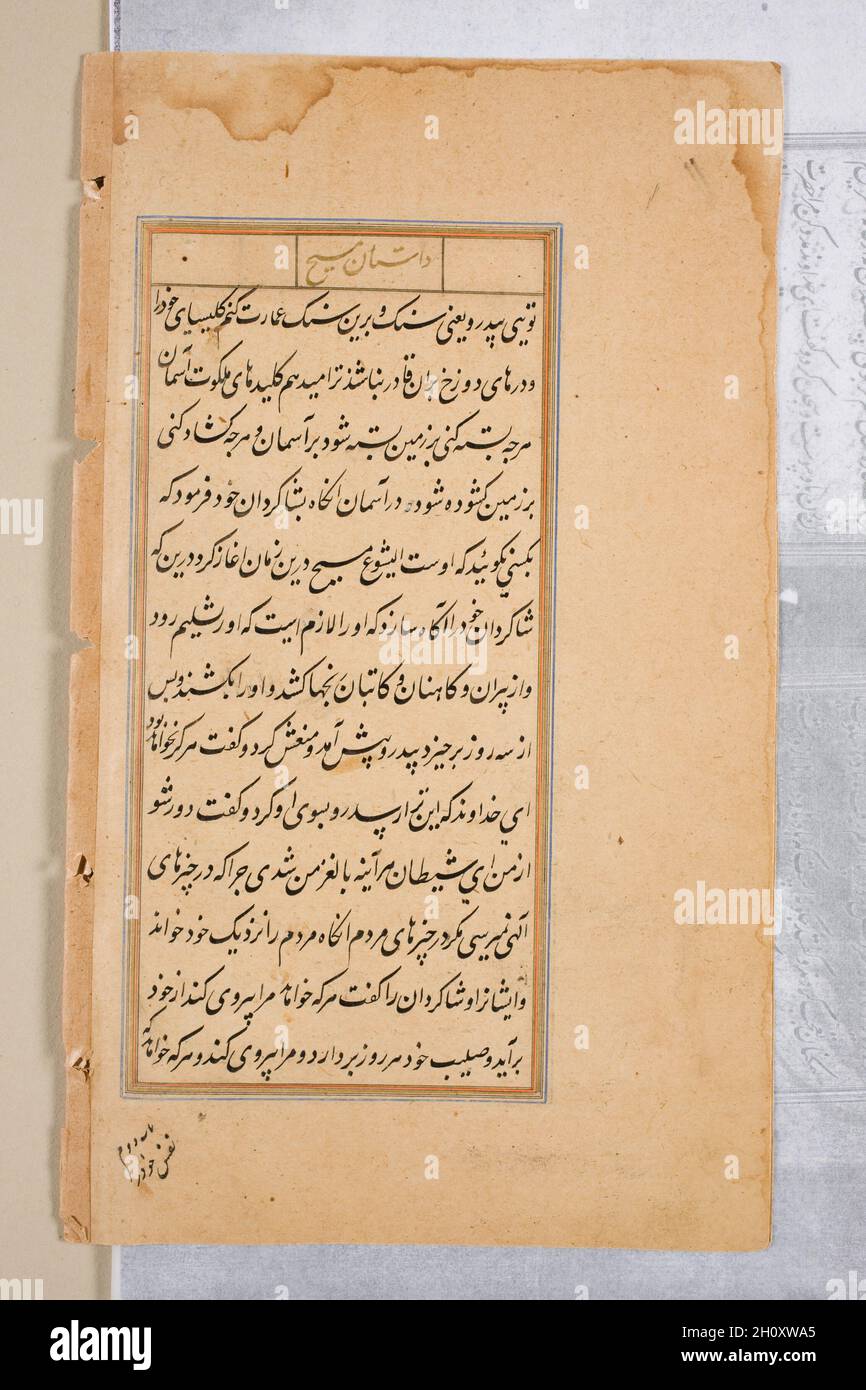 داستان مسیح
توئی پیدرو یعنی سنک و برین سنک عمارت کنم کلیسیای خود را
و درهای دوزخ بران قادر نباشند ترا میدهم کلیدهای ملکوت آسمان
هرچه بسته کنی بر زمین بسته شود بر آسمان و هرچه کشاد کنی
بر زمین کشوده شود در آسمان انکاه بشاکردان خود فرمود که
بکسی نکوئید که اوست ایشوع مسیح درین زمان اغاز کرد درین که
شاکردان خود را آکاه سازد که او را لازم است که اورشلیم رود
و از پیران و کاهنان و کاتبان رنجها کشد و او را بکشند و پس
از سه روز برخیزد پیدرو پیش آمد و منعش کرد و کفت هرکز نخواهد بود
ای خداوند که این ترا پیدرو بسوی او کرد و کفت دور شو
از من ای شیطان هرآینه بالغز من شدی چرا که در چیزهای
آلهی نمیرسی مکر در چیزهای مردم انکاه مردم را نزدیک خود خواند
و ایشانرا و شاکردان را کفت هرکه خواهد مرا پیروی کند از خود
برآید و صلیب خود هر روز بردارد و مرا پیروی کند و هرکه خواهد که
نفس خود را
alamy
Image ID: 2H0XWA5
www.alamy.com